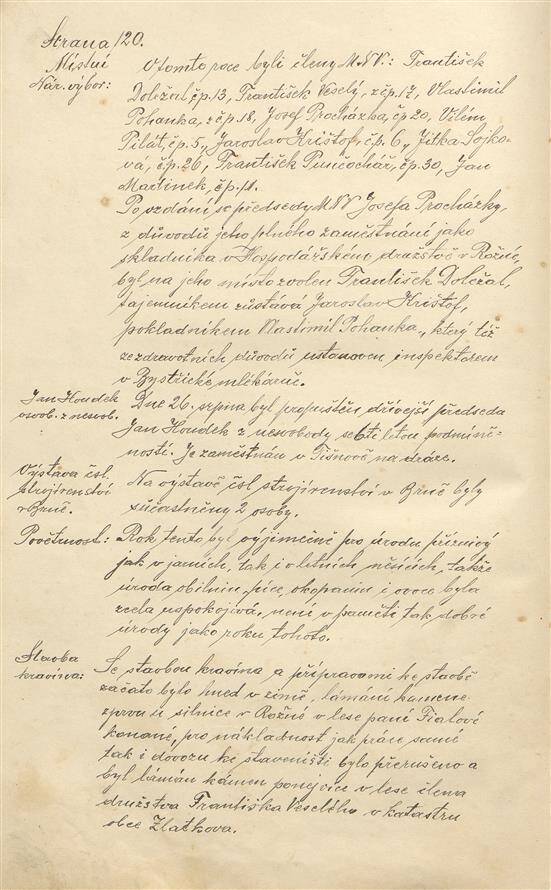 Strana 120.
Místní
Nár. výbor:
V tomto roce byli členy MNV.: František
Doležal č.p. 13, František Veselý, z č.p. 17, Vlastimil
Pohanka, z č.p. 18, Josef Procházka, č.p. 20, Vilém
Pilát, č.p. 5., Jaroslav Krištof, č.p. 6, Jitka Sojko-
vá, č.p. 26, František Punčochář, č.p. 30, Jan
Martinek, č.p. 11.
Po vzdání se předsedy MNV Josefa Procházky,
z důvodů jeho plného zaměstnání jako
skladníka v Hospodářském družstvě v Rožné,
byl na jeho místo zvolen František Doležal,
tajemníkem zůstává Jaroslav Krištof,
pokladníkem Vlastimil Pohanka, který též
ze zdravotních důvodů ustanoven inspektorem
v Bystřické mlékárně.
Jan Houdek
osvob. z nesvob.
Dne 26. srpna byl propuštěn dřívější předseda
Jan Houdek z nesvobody se 6ti letou podmíně-
ností. Je zaměstnán v Tišnově na dráze.
Výstava čsl.
strojírenství
v Brně.
Na výstavě čsl. strojírenství v Brně byly
súčastněny 2 osoby.
Povětrnost:
Rok tento byl výjimečně pro úrodu příznivý
jak v jarních, tak i v letních měsících, takže
úroda obilnin, píce, okopanin i ovoce byla
zcela uspokojivá, není v paměti tak dobré
úrody jako roku tohoto.
Stavba
kravína:
Se stavbou kravína a přípravami ke stavbě
začato bylo hned v zimě, lámání kamene
zprvu u silnice v Rožné v lese paní Fialové
konané, pro nákladnost jak práce samé
tak i dovozu ke staveništi bylo přerušeno a
byl lámán kámen ponejvíce v lese člena
družstva Františka Veselého v katastru
obce Zlatkova.